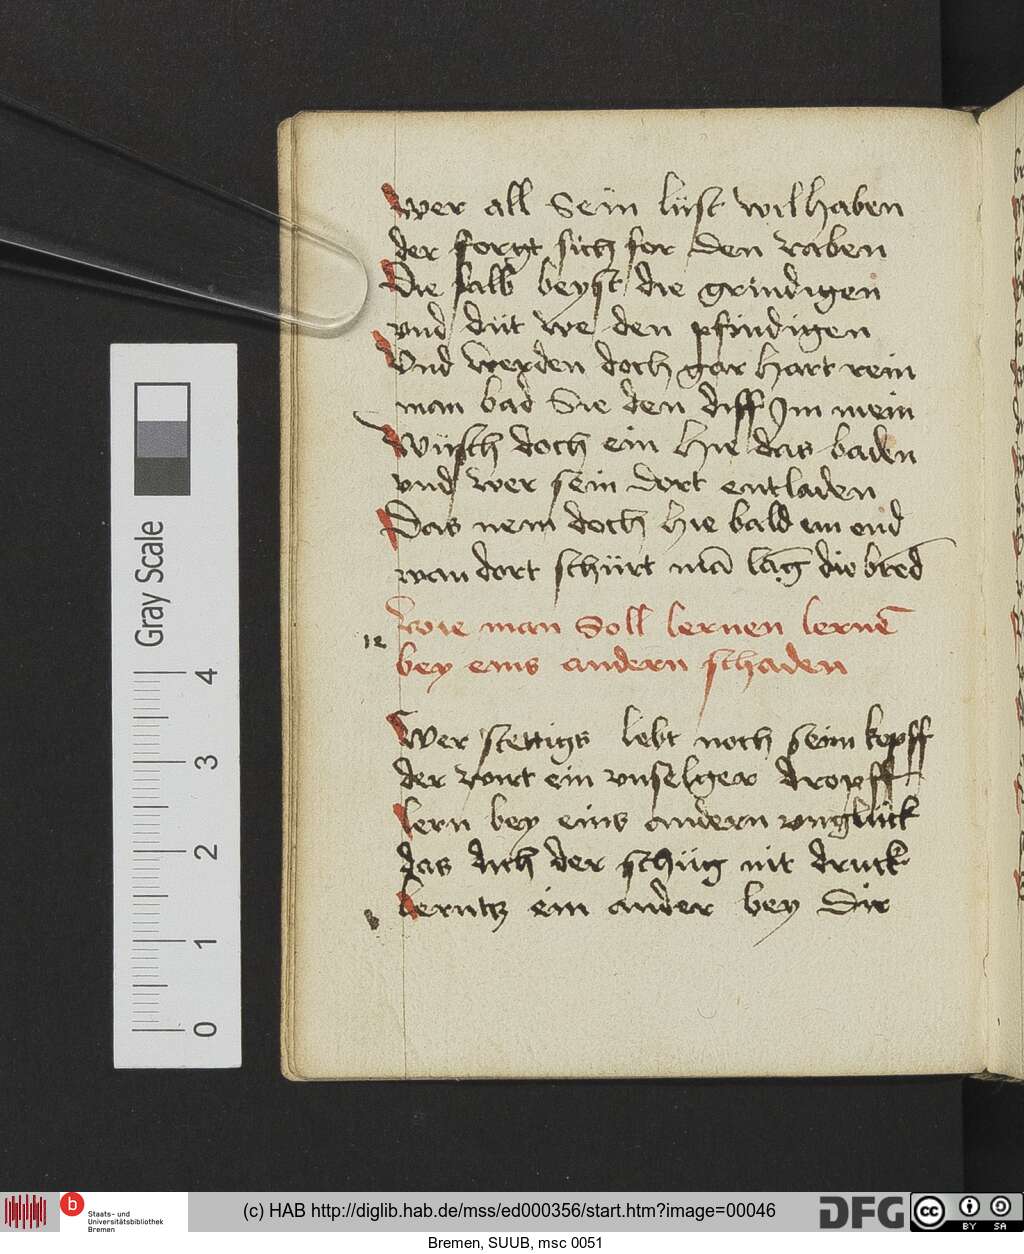 wer all Sein lüst wil haben
der sorgt sich for den raben
Die salb beyst die grindigen
vnd düt we den pfindigen
Vnd werden doch gar hart rein
man bad Sie den diff Im mein
Wüsch doch ein hie das baden
vnd wer sein dort entladen
Das nem doch hie bald ein end
wan dort schürt mā lāg die brēd
Wie man Soll lernen lernē
12
bey eins andern schaden
Wer stettigs lebt noch seim kopff
der wirt ein vnselger dropff
lern bey eins andern vnglück
das dich der schüg nit druck
lerntz ein ander bey Dir
Gray Scale
4
3
2
1
0
b
Staats- und
Universitätsbibliothek
Bremen
(c) HAB http://diglib.hab.de/mss/ed000356/start.htm?image=00046
DFG
cc
BY SA
Bremen, SUUB, msc 0051